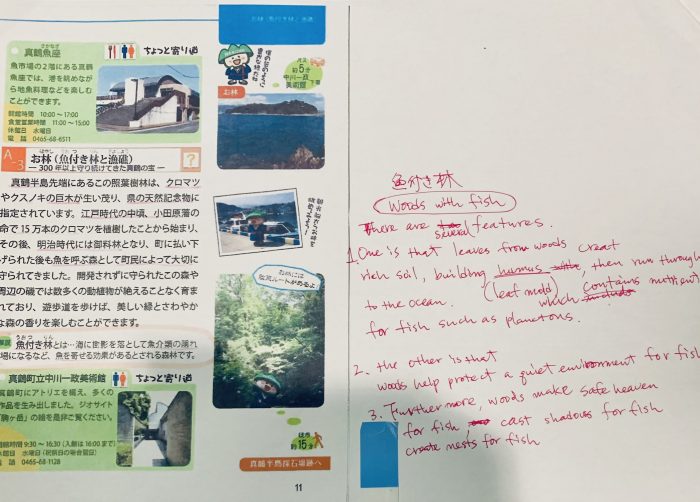 お林(魚付き林)・魚礁
真鶴魚座
さかなざ
ちょっと寄り道
魚市場の2階にある真鶴
魚座では、港を眺めなが
ら地魚料理などを楽しむ
ことができます。
開館時間 10:00〜17:00
食堂営業時間 11:00〜15:00
休館日 水曜日
電 話 0465-68-6511
バス
約5分
中川一政
美術館
下車
お林
A-3
お林(魚付き林と漁礁)
― 300年以上守り続けてきた真鶴の宝 ―
?
真鶴半島先端にあるこの照葉樹林は、クロマツ
やクスノキの巨木が生い茂り、県の天然記念物に
指定されています。江戸時代の中頃、小田原藩の
命で15万本のクロマツを植樹したことから始まり、
その後、明治時代には御料林となり、町に払い下
げられた後も魚を呼ぶ森として町民によって大切に
守られてきました。開発されずに守られたこの森や
周辺の磯では数多くの動植物が絶えることなく育ま
れており、遊歩道を歩けば、美しい緑とさわやか
な森の香りを楽しむことができます。
お林には
散策ルートがあるよ
解説
うおつ りん
魚付き林とは…海に樹影を落として魚介類の隠れ
場になるなど、魚を寄せる効果があるとされる森林です。
真鶴町立中川一政美術館
ちょっと寄り道
真鶴町にアトリエを構え、多くの
作品を生み出しました。ジオサイト
「駒ヶ岳」の絵を是非ご覧ください。
開館時間 9:30〜16:30(入館は16:00まで)
休館日 水曜日(祝祭日の場合開館)
電 話 0465-68-1128
徒歩
約15分
真鶴半島採石場跡へ
11
魚付き林
Woods with fish
There are several features.
1. One is that leaves from woods creat
rich soil, building humus, then run through
(leaf mold)
to the ocean. which contains nutrient
for fish such as planctons.
2. the other is that
woods help protect a quiet environment for fish
3. Furthermore, woods make safe heaven
for fish, cast shadows for fish
create nests for fish